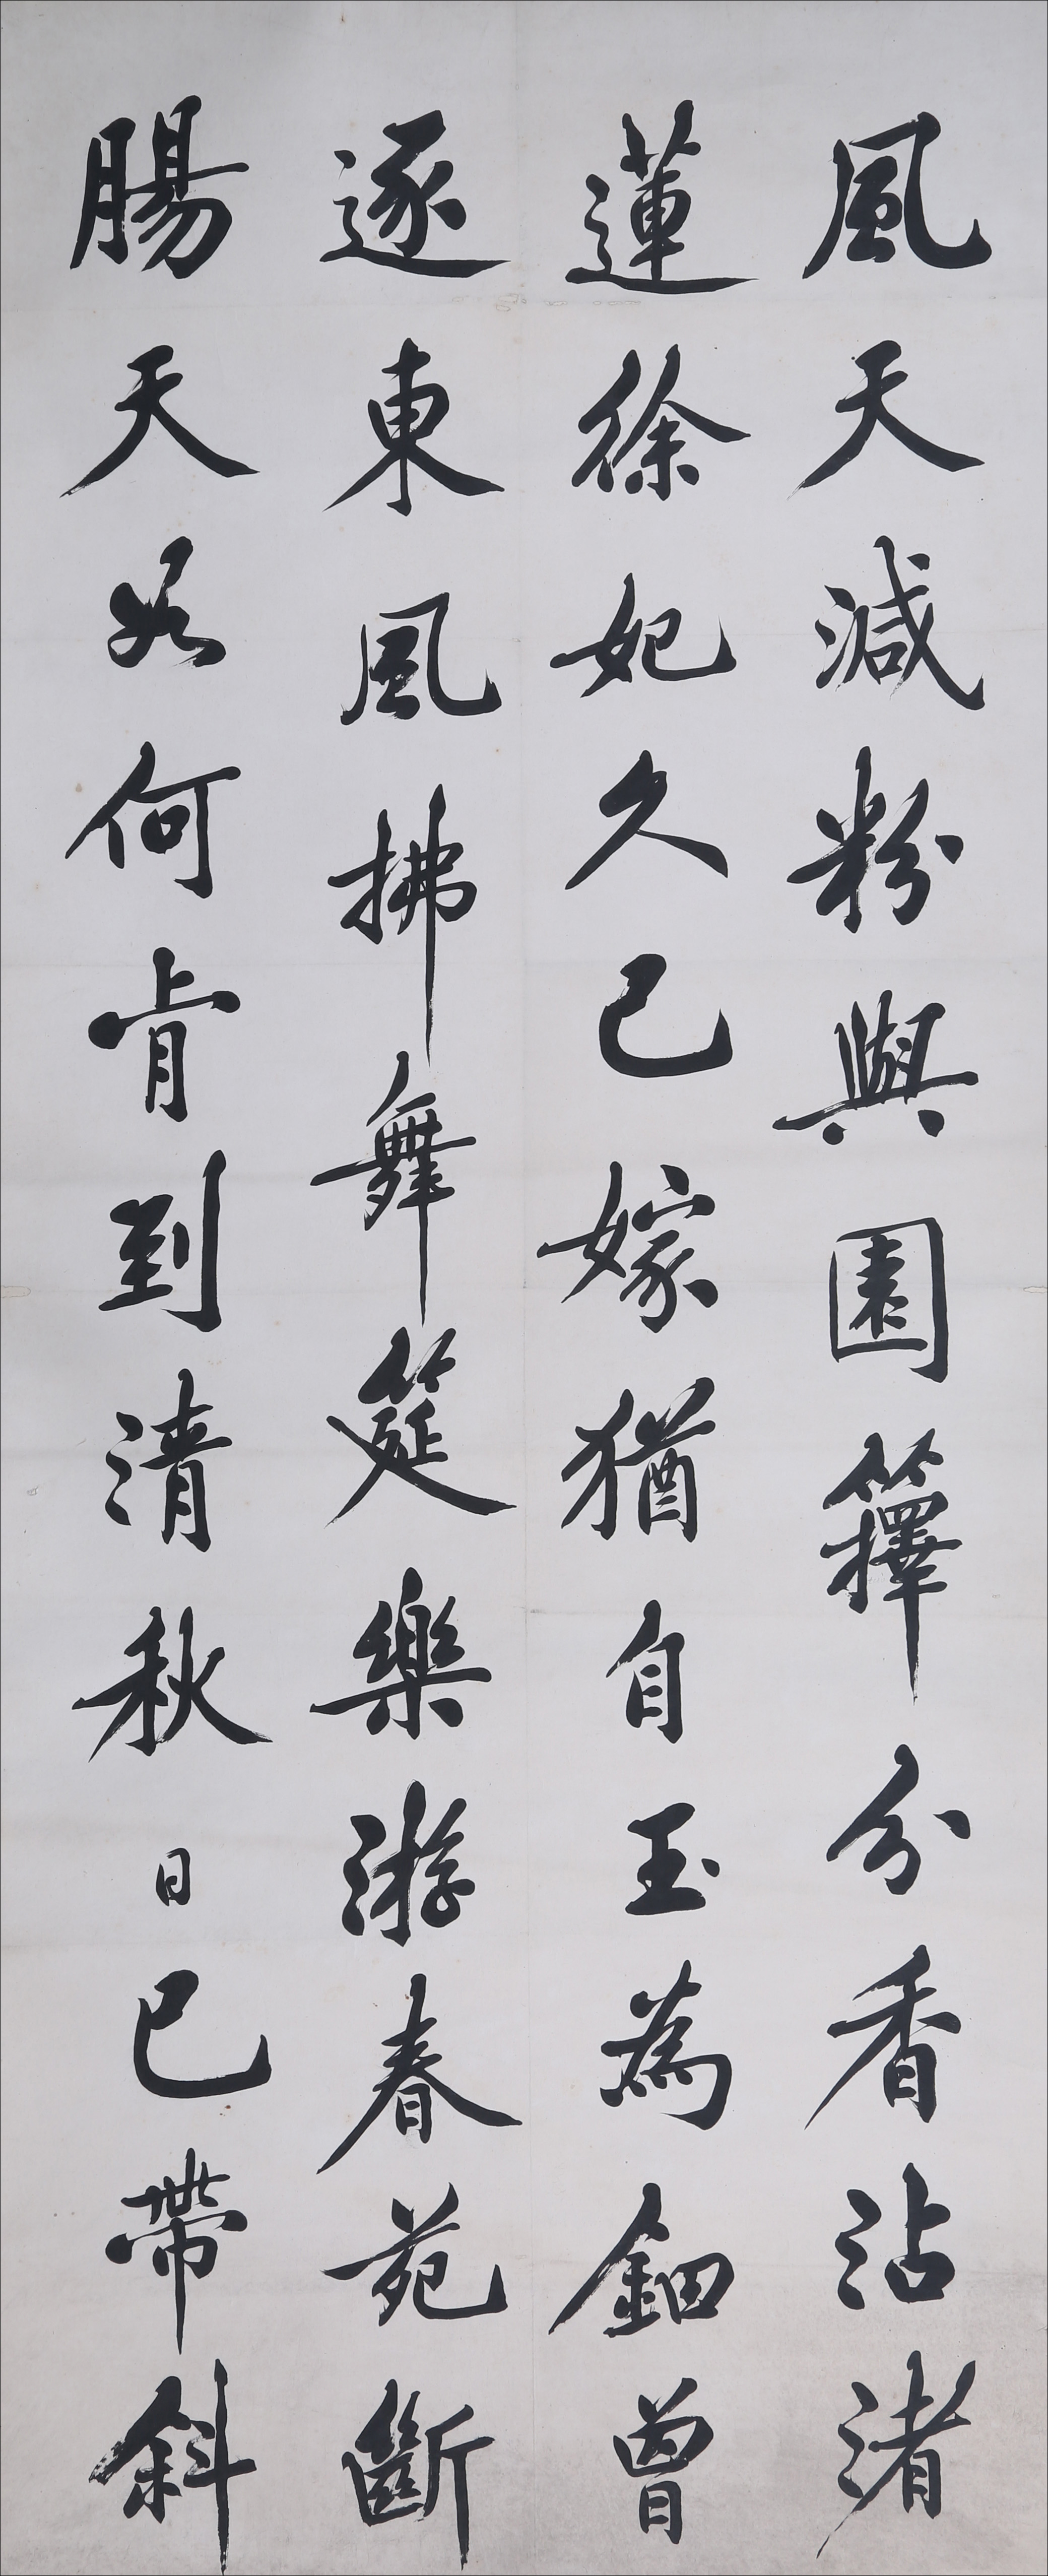 風天減粉與園籜分香沾渚
蓮徐妃久已嫁猶自玉為鈿曾
逐東風拂舞筵樂游春苑斷
腸天如何肯到清秋日已帶斜